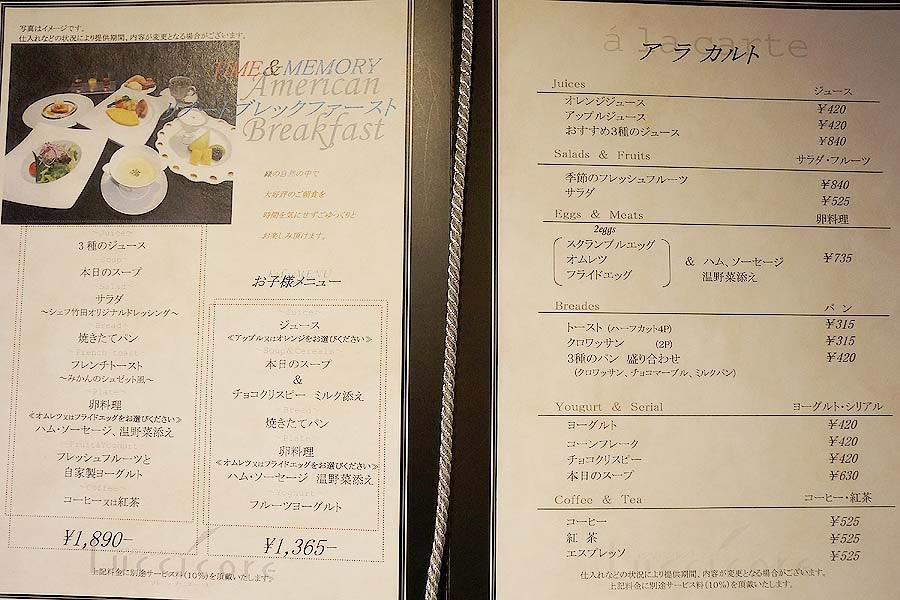 写真はイメージです。
仕入れなどの状況により提供期間、内容が変更となる場合がございます。
TIME&MEMORY
American
ブレックファースト
Breakfast
緑の自然の中で
大好評のご朝食を
時間を気にせずごゆっくりと
お楽しみ頂けます。
3種のジュース
本日のスープ
サラダ
～シェフ竹田オリジナルドレッシング～
焼きたてパン
French toast
フレンチトースト
～みかんのシュゼット風～
卵料理
≪オムレツ又はフライドエッグをお選びください≫
ハム・ソーセージ、温野菜添え
フレッシュフルーツと
自家製ヨーグルト
コーヒー又は紅茶
¥1,890-
お子様メニュー
ジュース
≪アップル又はオレンジをお選びください≫
Soup&Cereal
本日のスープ
&
チョコクリスピー ミルク添え
Bread
焼きたてパン
卵料理
≪オムレツ又はフライドエッグをお選びください≫
ハム・ソーセージ 温野菜添え
フルーツヨーグルト
¥1,365-
上記料金に別途サービス料(10%)を頂戴いたします。
á la carte
アラカルト
Juices ジュース
オレンジジュース ¥420
アップルジュース ¥420
おすすめ3種のジュース ¥840
Salads & Fruits サラダ・フルーツ
季節のフレッシュフルーツ ¥840
サラダ ¥525
Eggs & Meats 卵料理
2eggs
スクランブルエッグ
オムレツ & ハム、ソーセージ ¥735
フライドエッグ 温野菜添え
Breades パン
トースト (ハーフカット4P) ¥315
クロワッサン (2P) ¥315
3種のパン 盛り合わせ ¥420
(クロワッサン、チョコマーブル、ミルクパン)
Yougurt & Serial ヨーグルト・シリアル
ヨーグルト ¥420
コーンフレーク ¥420
チョコクリスピー ¥420
本日のスープ ¥630
Coffee & Tea コーヒー・紅茶
コーヒー ¥525
紅 茶 ¥525
エスプレッソ ¥525
仕入れなどの状況により提供期間、内容が変更となる場合がございます。
上記料金に別途サービス料(10%)を頂戴いたします。